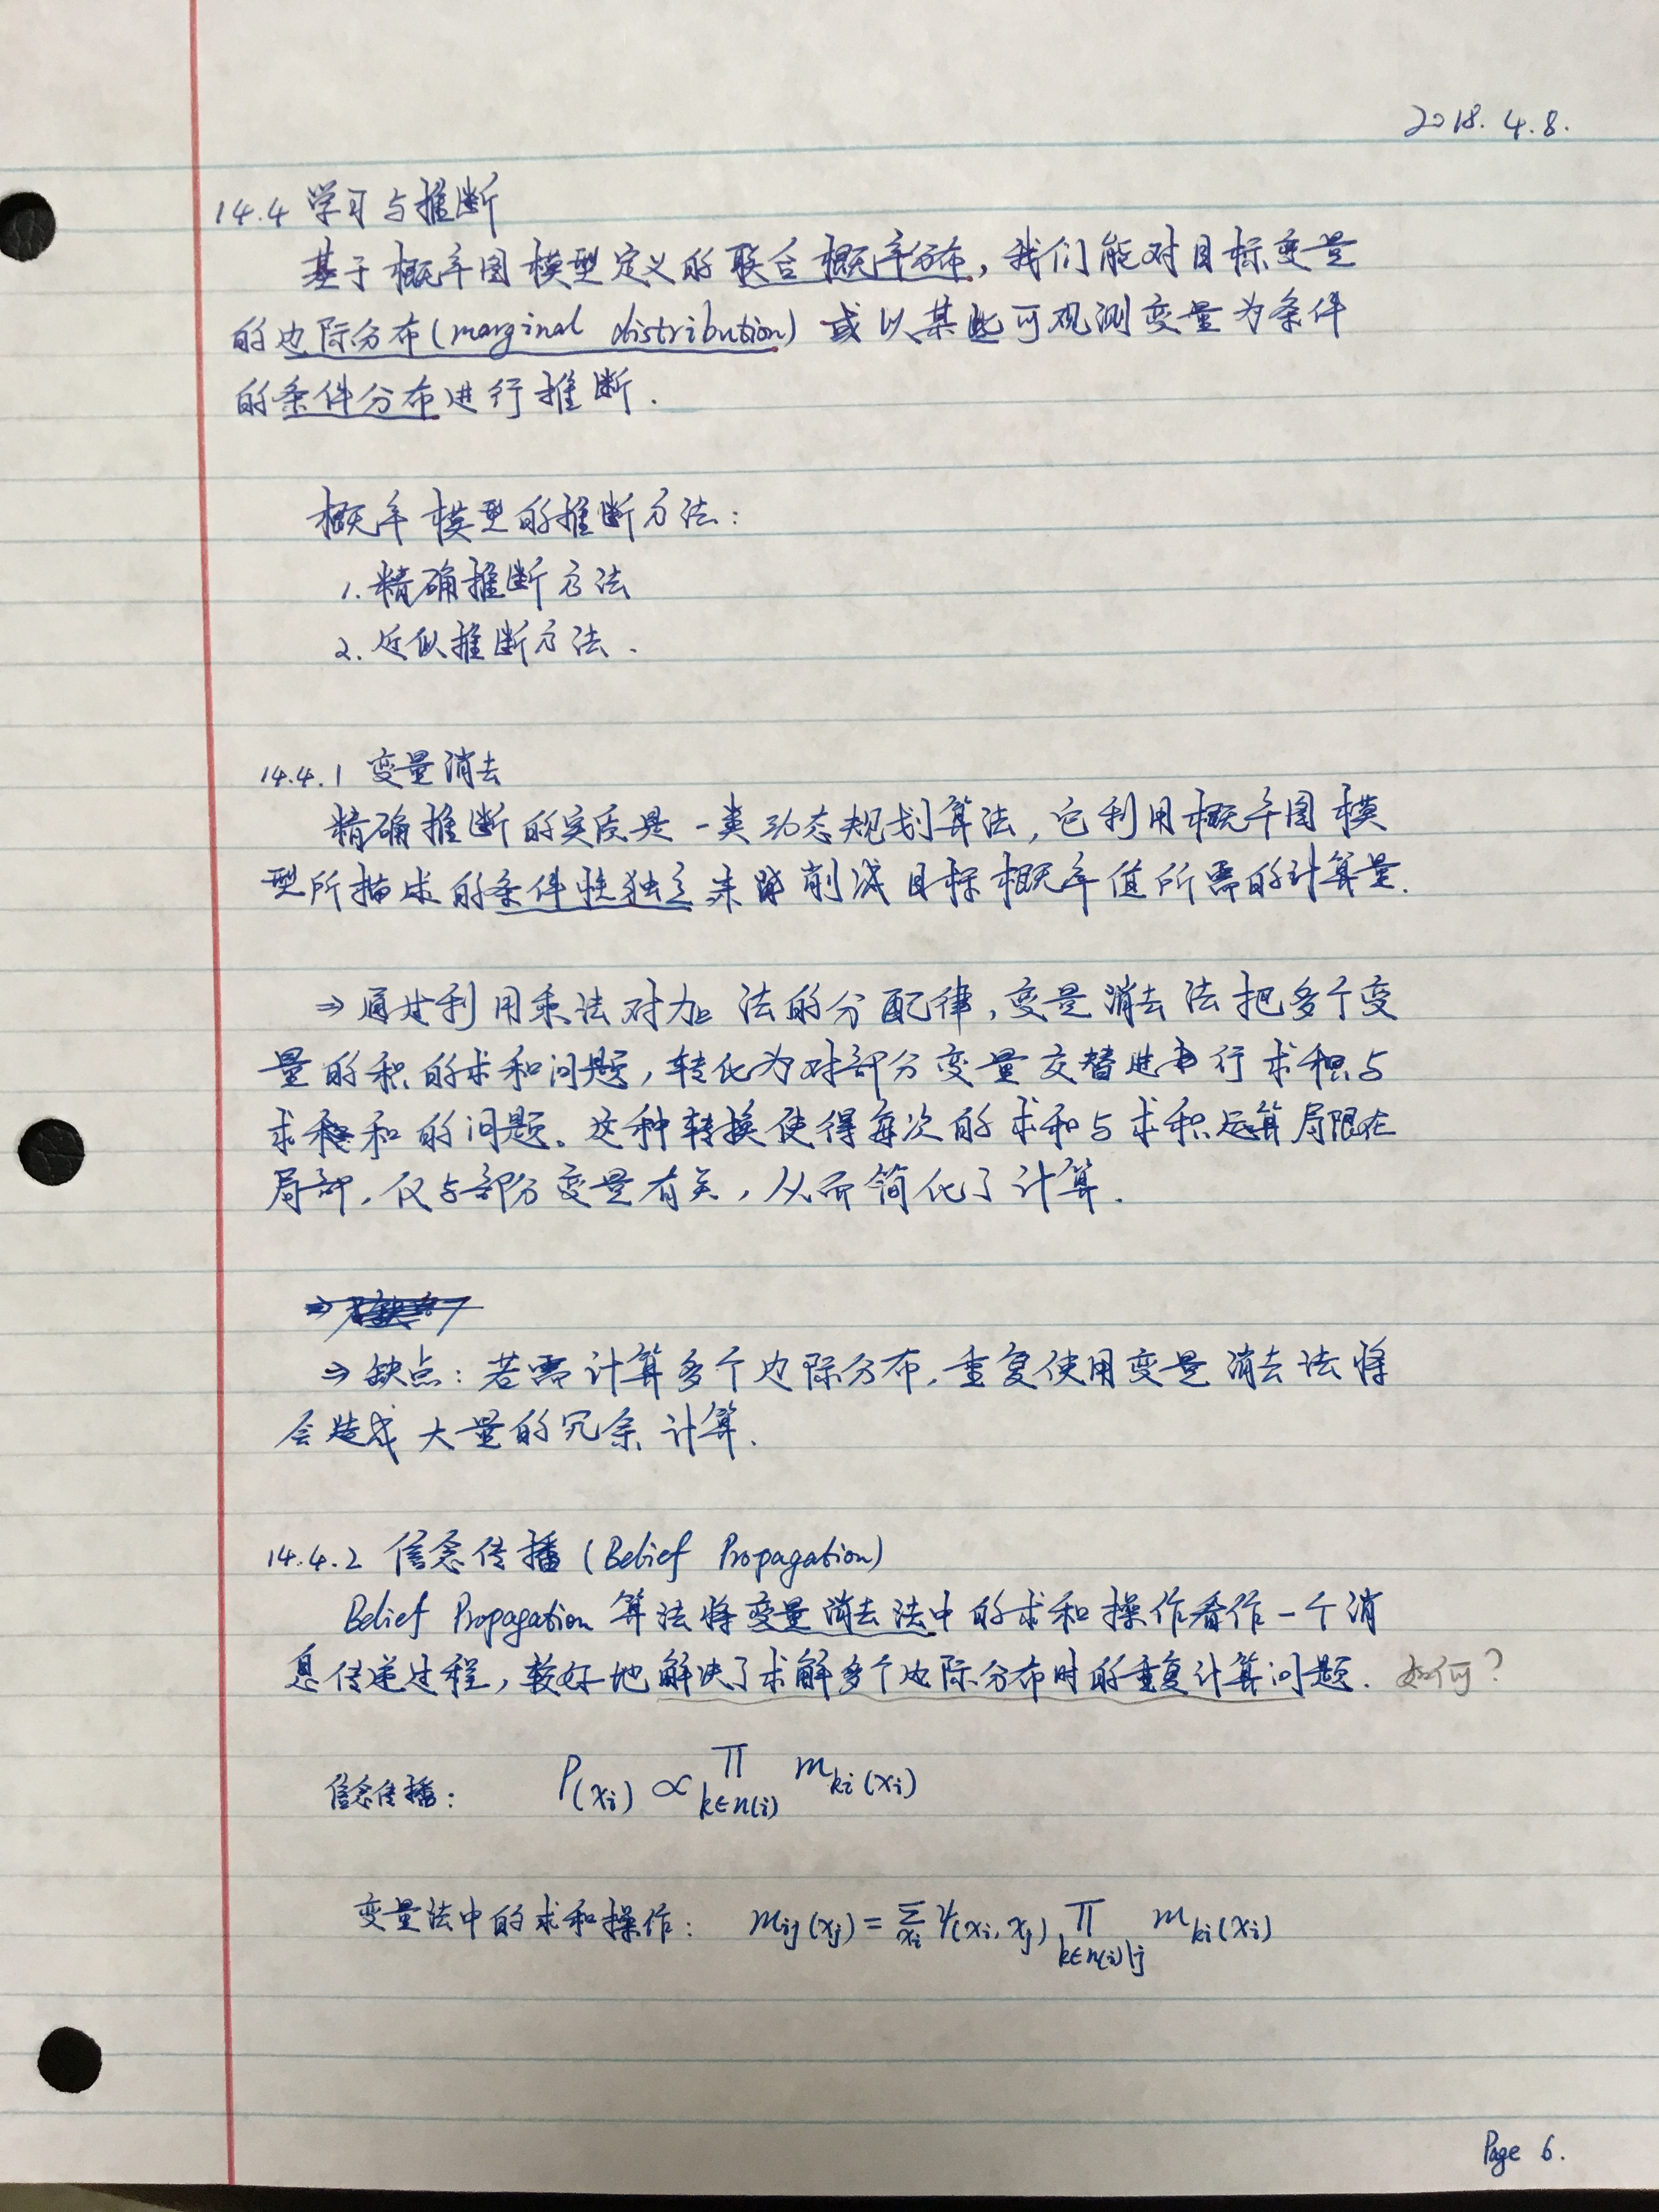 2018. 4. 8.
14.4 学习与推断
基于概率图模型定义的联合概率分布, 我们能对目标变量
的边际分布(marginal distribution) 或以某些可观测变量为条件
的条件分布进行推断.
概率模型的推断方法:
1. 精确推断方法
2. 近似推断方法.
14.4.1 变量消去
精确推断的实质是一类动态规划算法, 它利用概率图模
型所描述的条件性独立来削减目标概率值所需的计算量.
⇒ 通过利用乘法对加法的分配律, 变量消去法把多个变
量的积的求和问题, 转化为对部分变量交替进行求积与
求和的问题。这种转换使得每次的求和与求积运算局限在
局部, 仅与部分变量有关, 从而简化了计算.
⇒ 缺点: 若需计算多个边际分布, 重复使用变量消去法将
会造成大量的冗余计算.
14.4.2 信念传播 (Belief Propagation)
Belief Propagation 算法将变量消去法中的求和操作看作一个消
息传递过程, 较好地解决了求解多个边际分布时的重复计算问题. 如何?
信念传播: P(xᵢ) ∝ ∏_{k∈n(i)} m_{ki}(xᵢ)
变量法中的求和操作: m_{ij}(x_j) = ∑_{xᵢ} ψ(xᵢ, x_j) ∏_{k∈n(i)\j} m_{ki}(xᵢ)
Page 6.